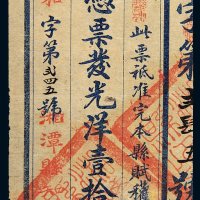 字第弍肆五號
此票祗准完本縣賦稅
憑票發光洋壹拾
字第弍四五號
潭縣